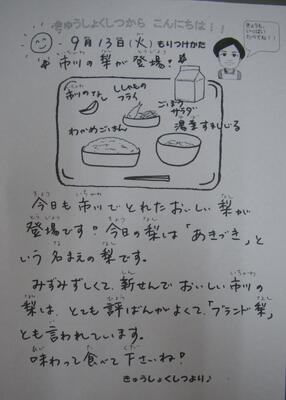 きゅうしょくしつから こんにちは…!
きょうも、
いっぱい
たべてね!!
9月13日(火)もりつけかた
市川の梨が登場!
市川のなし
ししゃもの
フライ
ごぼう
サラダ
わかめごはん
湯葉すましじる
今日も市川でとれたおいしい梨が
登場です!今日の梨は「あきづき」と
いう名まえの梨です。
みずみずしくて、新せんでおいしい市川の
梨は、とても評ばんがよくて、「ブランド梨」
とも言われています。
味わって食べて下さいね!
きゅうしょくしつより♪